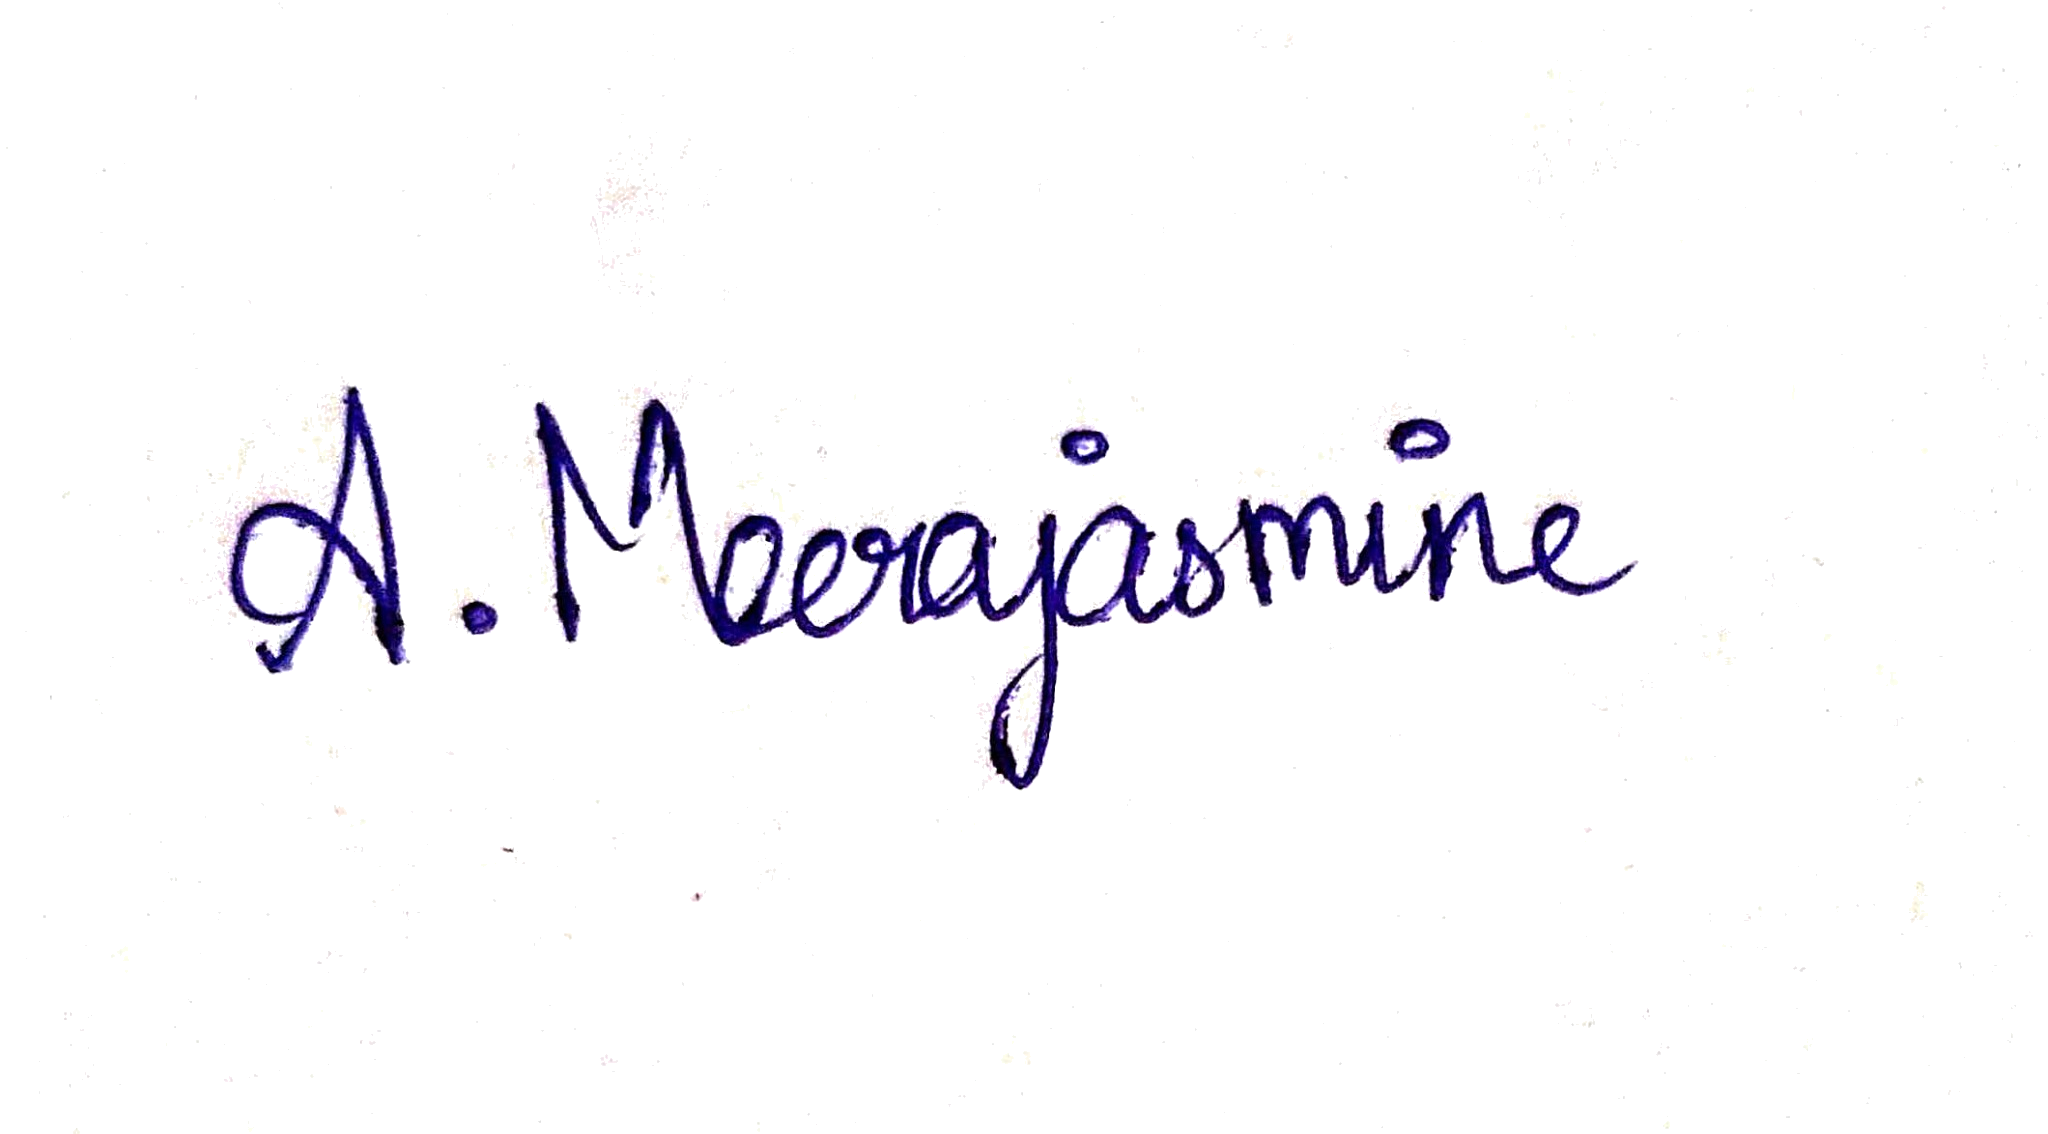 A. Meerajasmine